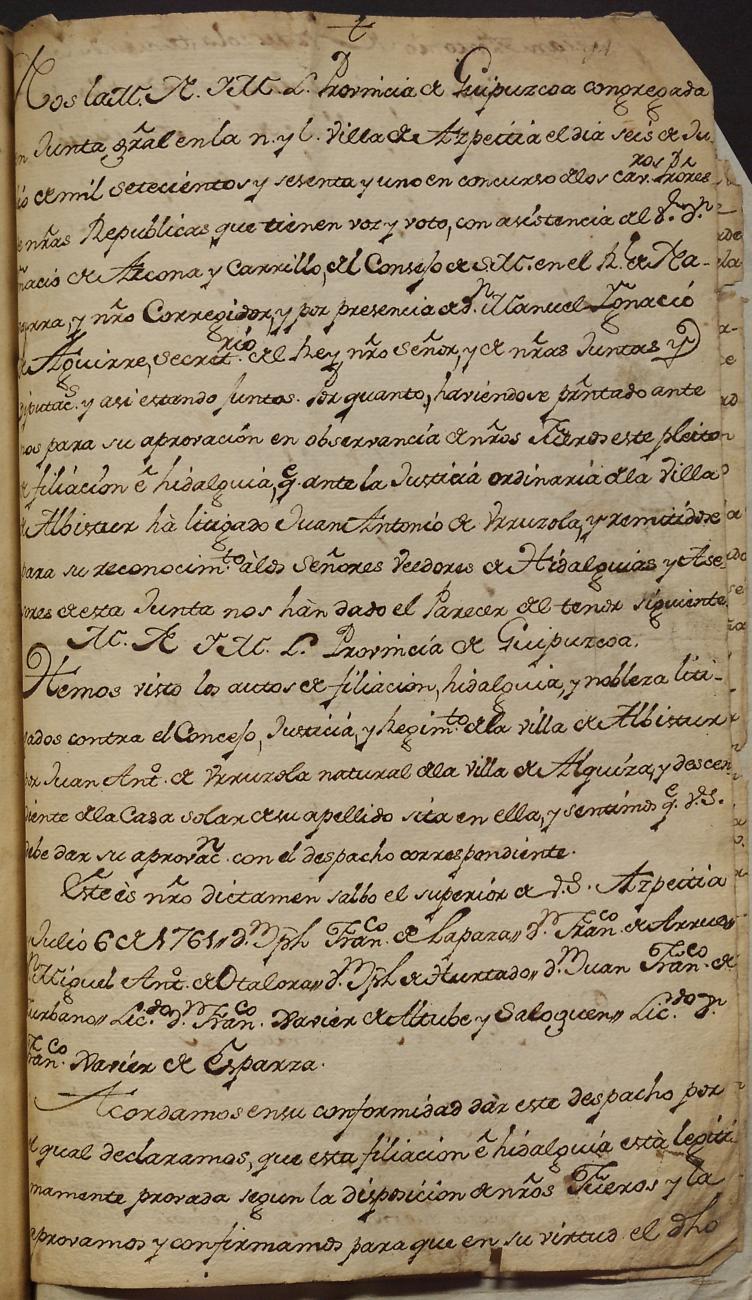 +
Nos la M. N. Y M. L. Provincia de Guipuzcoa congregada
en Junta gral en la n. y l. villa de Azpeitia el dia seis de Ju-
lio de mil setecientos y sesenta y uno en concurso de los cav.ros Prores
de nras Republicas que tienen voz y voto, con asistencia del S.r D.n
Ygnació de Azcona y Carrillo, del Consejo de S.M. en el R.l de Na-
varra, y nro Corregidor, y por presencia de D.n Manuel Ygnació
de Aguirre, Secret.rio del Rey nro Señor, y de nras Juntas y
Diputac.s y asi estando juntos. Por quanto, haviendose prntado ante
nos para su aprovación en observancia de nros Fueros este pleito
de filiación é hidalguia, q.e ante la Justicia ordinaria de la villa
de Albistur hà litigado Juan Antonio de Urruzola, y remitidose
para su reconocim.to à los Señores Veedores de Hidalguias y Ase-
sores de esta Junta nos hàn dado el Parecer del tenor siguiente
M. N. Y M. L. Provincia de Guipuzcoa.
Hemos visto los autos de filiación, hidalguia, y nobleza liti-
gados contra el Concejo, Justicia, y Regim.to de la villa de Albistur
por Juan Ant.o de Urruzola natural de la villa de Alquiza, y descen
diente de la Casa solar de su apellido sita en ella, y sentimos q.e V.S.
debe dar su aprovac.n con el despacho correspondiente.
Este ès nro dictamen salbo el superiór de V.S. Azpeitia
Julio 6 de 1761,, D.n Jph Fran.co de Lapaza,, D.n Fran.co de Arrue,,
D.n Miguel Ant.o de Otalora,, D.n Jph de Hurtado,, D.n Juan Fran.co de
Turbano,, Lic.do D.n Fran.co Xavier de Altube y Saloguen,, Lic.do D.n
Fran.co Xavier de Esparza.
Acordamos en su conformidad dàr este despacho por
el qual declaramos, que esta filiación é hidalguia està legiti
mamente provada segun la disposicion de nros Fueros y la
aprovamos y confirmamos para que en su virtud el dho